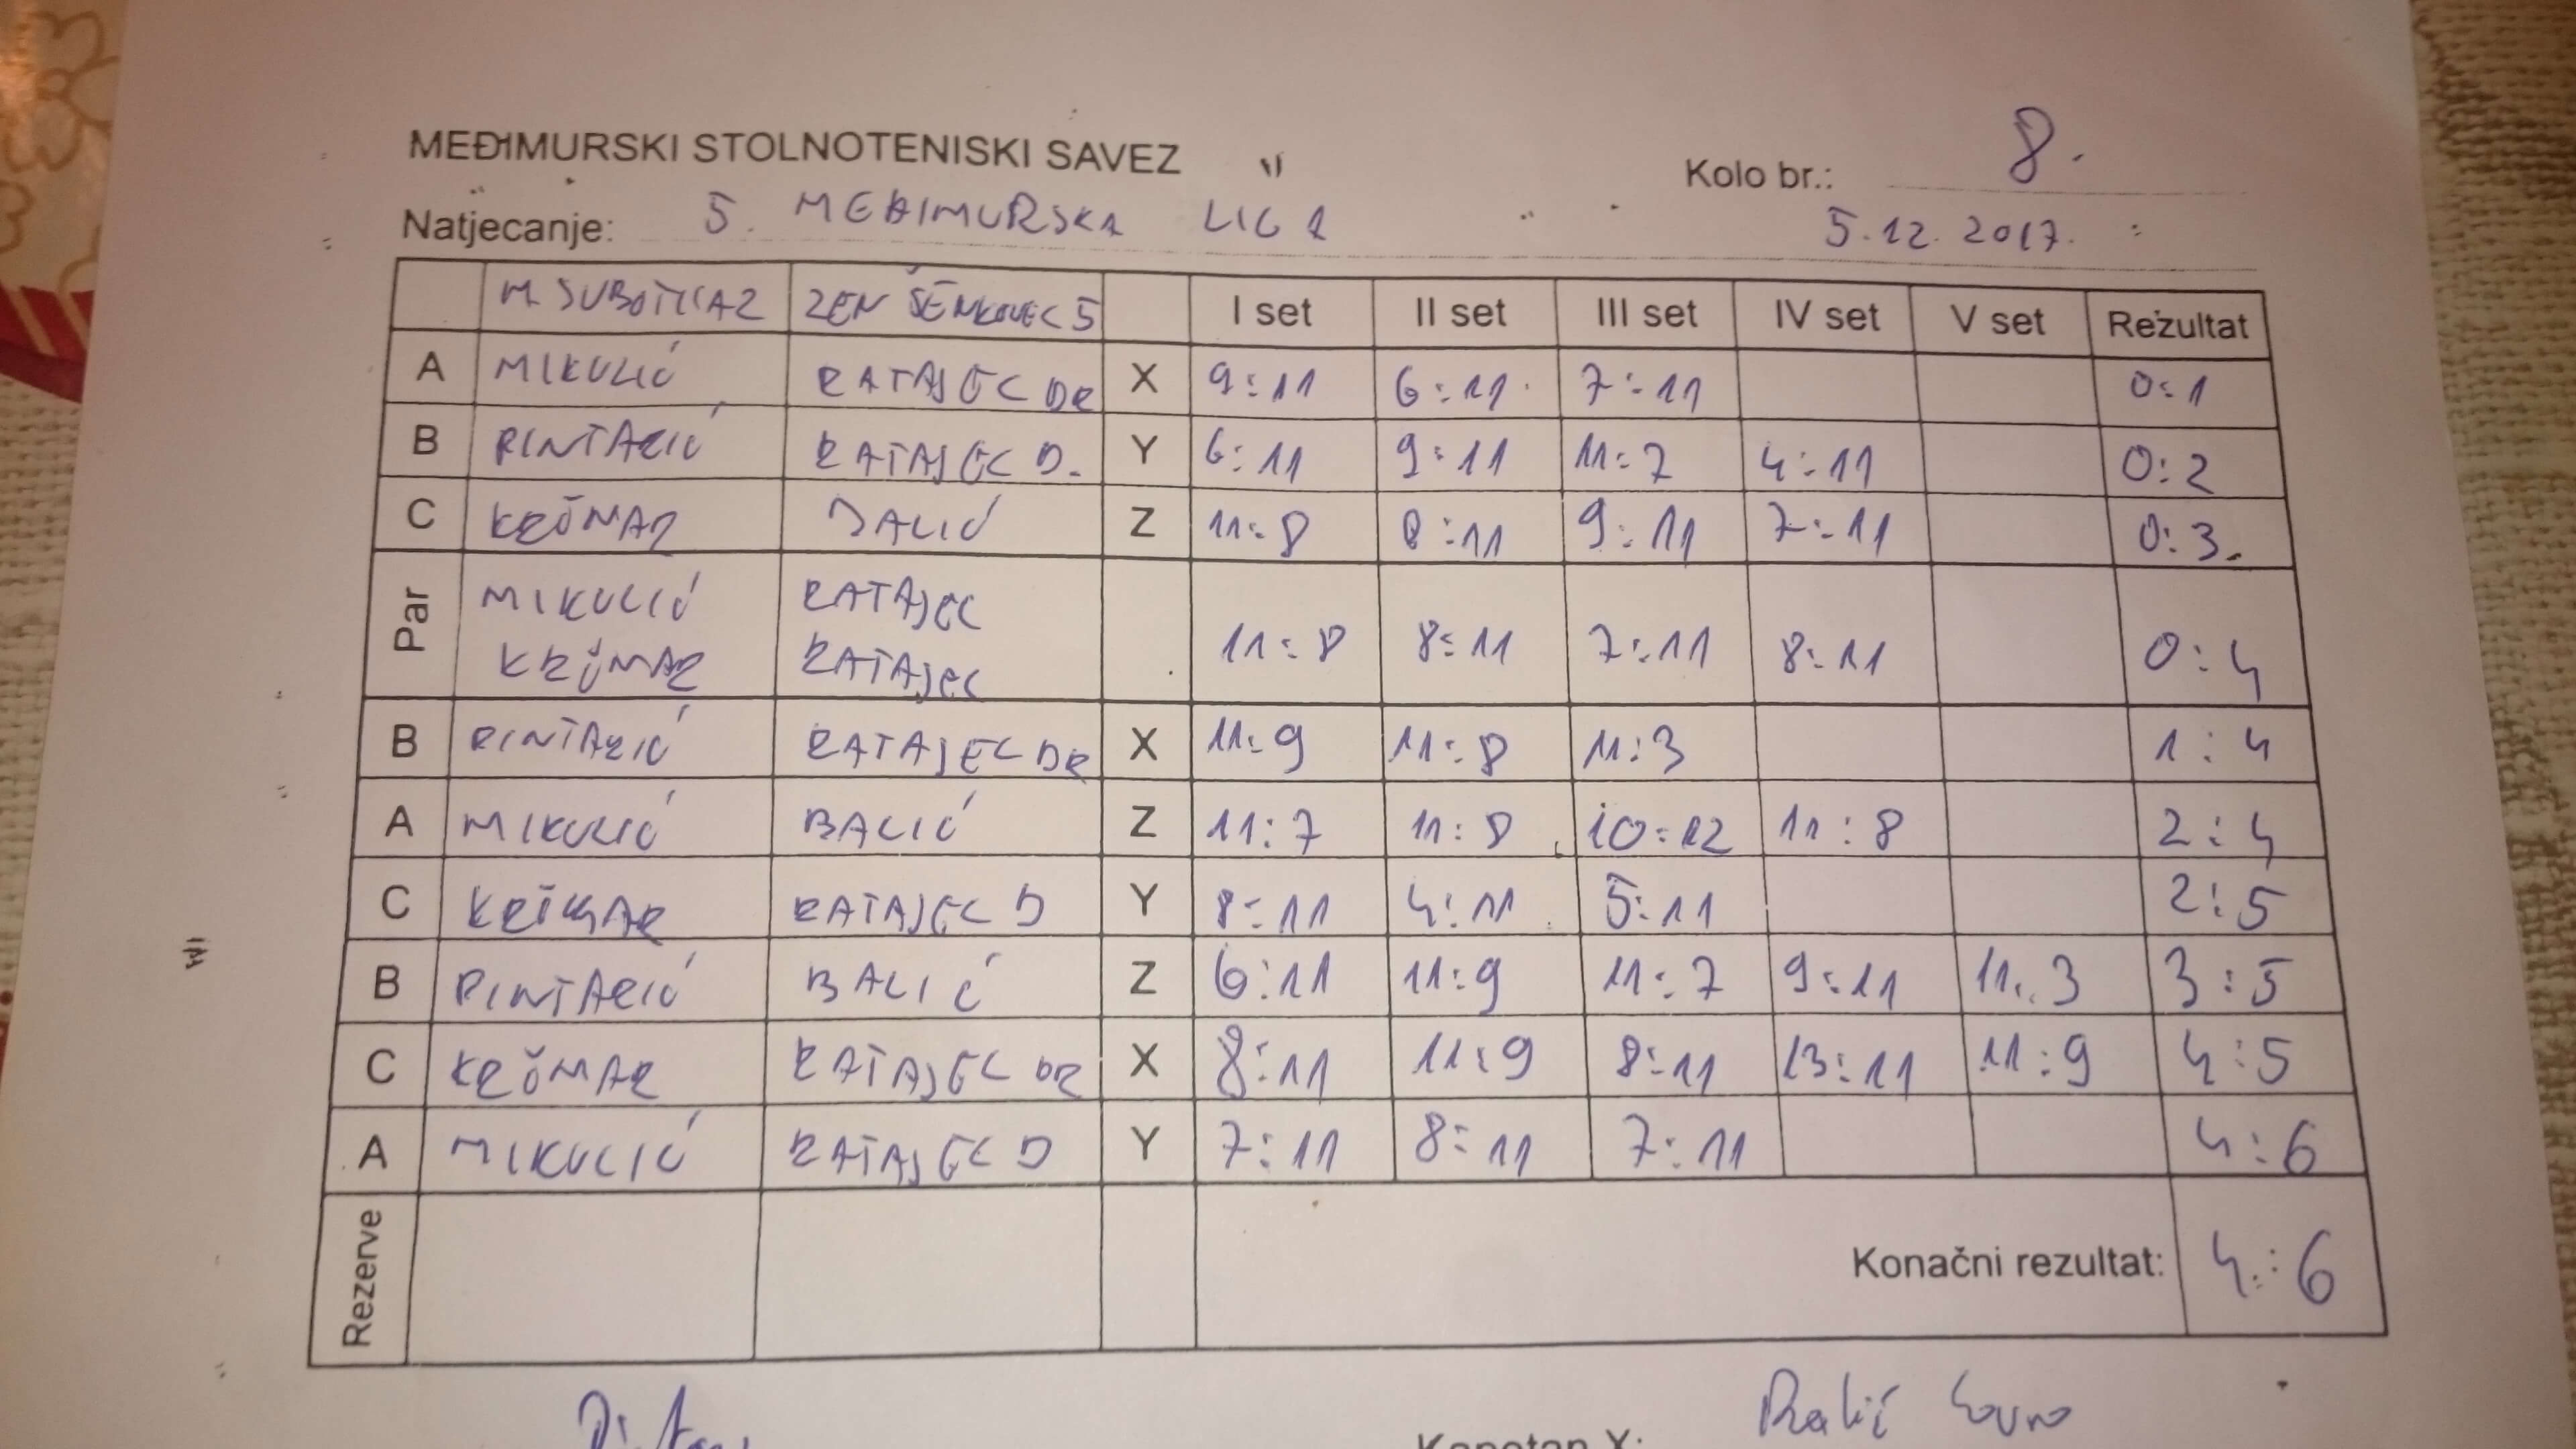 MEĐIMURSKI STOLNOTENISKI SAVEZ
Kolo br.: 8.
Natjecanje: 5. MEĐIMURSKA LIGA 5.12.2017.
M. SUBOTICA 2 ZEN ŠENKOVEC 5 I set II set III set IV set V set Rezultat
A MIKULIĆ RATAJEC DR X 9:11 6:11 7:11 0:1
B PINTARIĆ RATAJEC D. Y 6:11 9:11 11:7 4:11 0:2
C KRČMAR BALIĆ Z 11:8 8:11 9:11 7:11 0:3.
Par MIKULIĆ RATAJEC
KRČMAR RATAJEC 11:8 8:11 7:11 8:11 0:4
B PINTARIĆ RATAJEC DR X 11:9 11:8 11:3 1:4
A MIKULIĆ BALIĆ Z 11:7 11:8 10:12 11:8 2:4
C KRČMAR RATAJEC D Y 8:11 4:11 5:11 2:5
B PINTARIĆ BALIĆ Z 6:11 11:9 11:7 9:11 11:3 3:5
C KRČMAR RATAJEC DR X 8:11 11:9 8:11 13:11 11:9 4:5
A MIKULIĆ RATAJEC D Y 7:11 8:11 7:11 4:6
Rezerve Konačni rezultat: 4:6